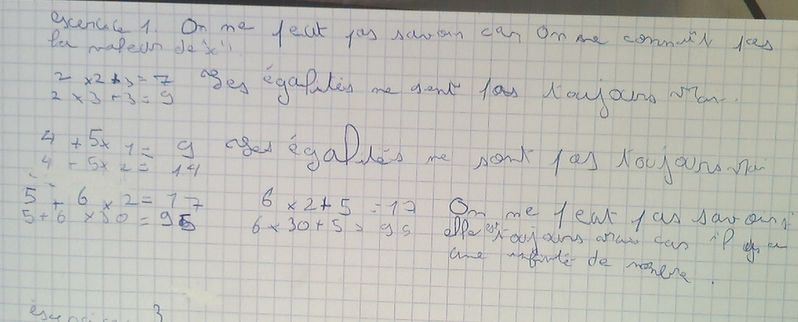 exercice 1. On ne peut pas savoir car On ne connaît pas
la valeur de x
2 x2+3=7 Les égalités ne sont pas toujours vrai.
2 x 3+3=9
4 + 5x 1= 9 Les égalités ne sont pas toujours vrai
4 + 5x 2= 14
5 + 6 x 2= 17 6 x 2+5 =17 On ne peut pas savoir si
5+6 x30 = 95 6 x 30+5 = 95 elle est toujours vrai car il y a
une infinité de nombre.
exercice 3